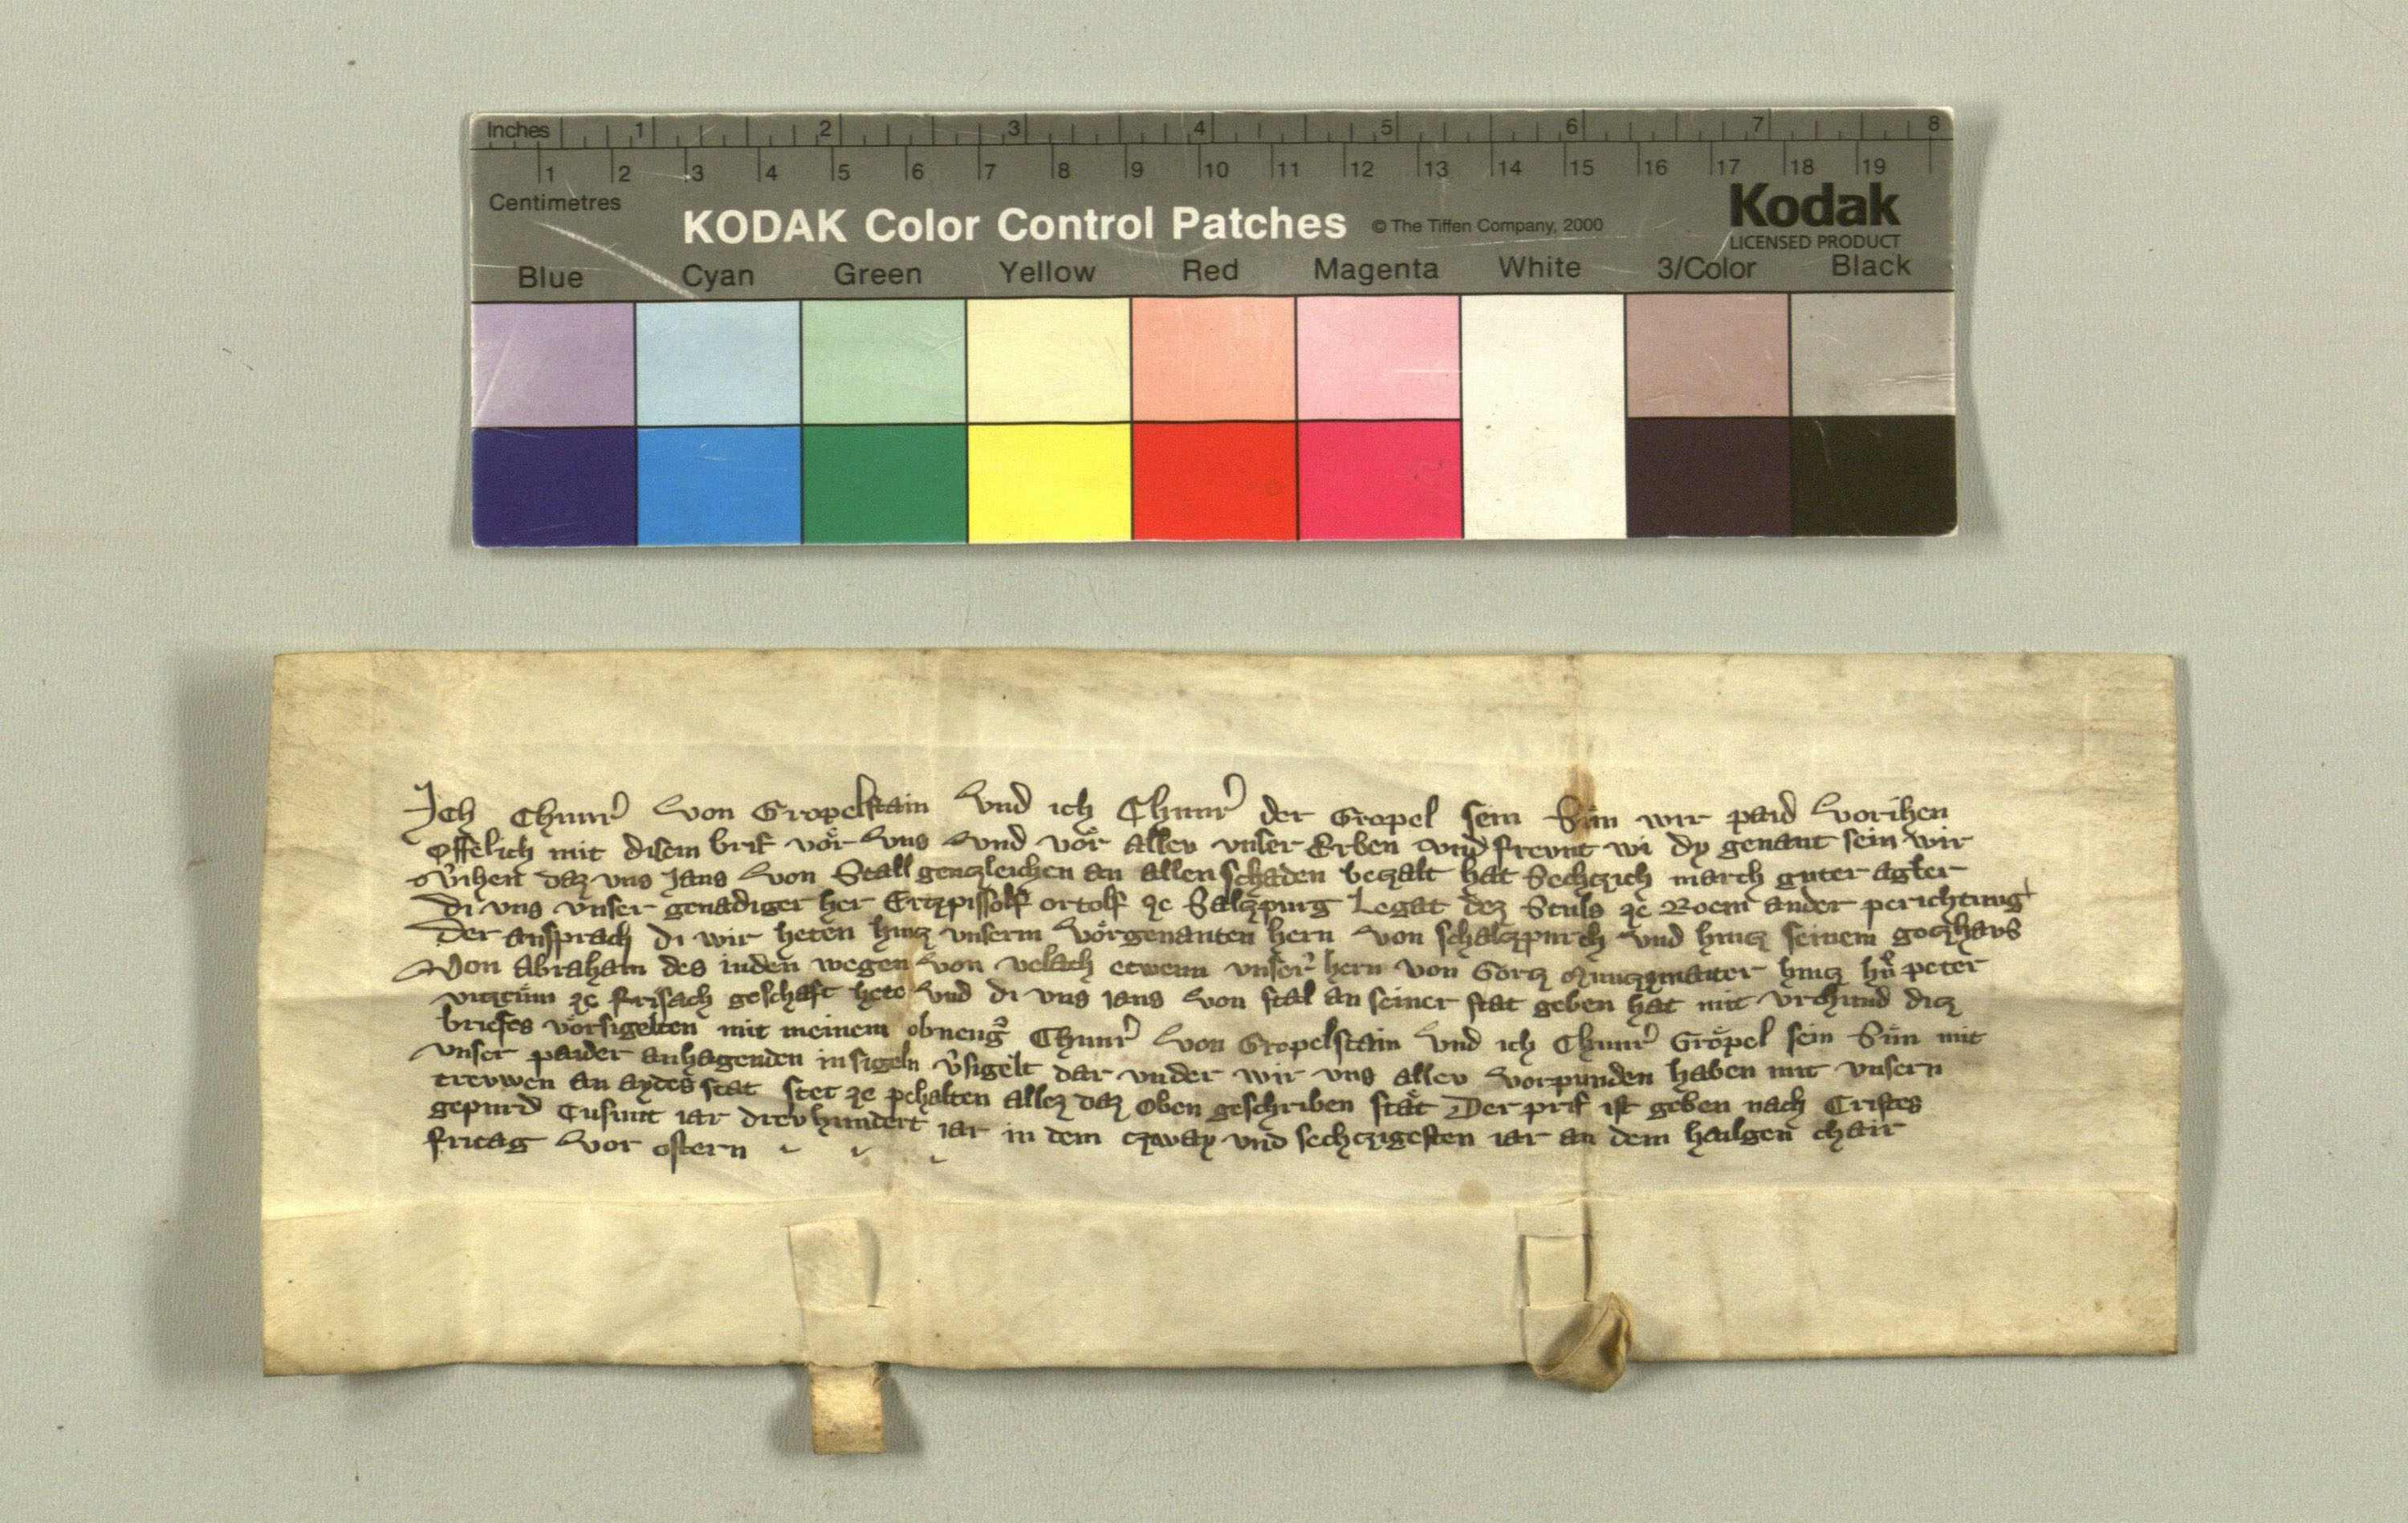 Inches 1 2 3 4 5 6 7 8
1 2 3 4 5 6 7 8 9 10 11 12 13 14 15 16 17 18 19
Centimetres
KODAK Color Control Patches © The Tiffen Company, 2000 Kodak
LICENSED PRODUCT
Blue Cyan Green Yellow Red Magenta White 3/Color Black
Ich Chunr̄ von Gropelstain vnd ich Chunr̄ der Gropel sein Sůn wir paid vorihen
offelich mit disem brif vo̊r vns vnd vo̊r allev vnser Erben vnd frevnt wi dy genant sein wir
v̄rihen daz vns Jans von Stall genczleichen an allen schaden beczalt hat Sechtzich march guter agler
di vns vnser genadiger her Ertzpissolf ortolf ze Salzpurg Legat dez Stuls ze Roem an der perichtung
Der ansprach di wir heten hincz vnserm vo̊rgenanten hern von schalczpurch vnd hincz seinem goczhavs
Von abraham des iuden wegen von velach etwenn vnser̄ hern von Gorcz Munczmaiter hincz hn̄ peter
vicztům ze frisach geschaft hete vnd di vns Jans von stal an seiner stat geben hat mit vrchund dicz
briefes vo̊rsigelten mit meinem obnenḡ Chunr̄ von Gropelstain vnd ich Chunr̄ Gro̊pel sein Sůn mit
vnser paider anhagenden insigeln v̄sigelt dar vnder wir vns allev vorpunden haben mit vnsern
trevwen an aydes stat stet ze pehalten allez daz oben geschriben stat Der prif ist geben nach Cristes
gepurd Tusunt iar drevhundert iar in dem czway vnd sechczigesten iar an dem hailgen chair
fritag vor ostern